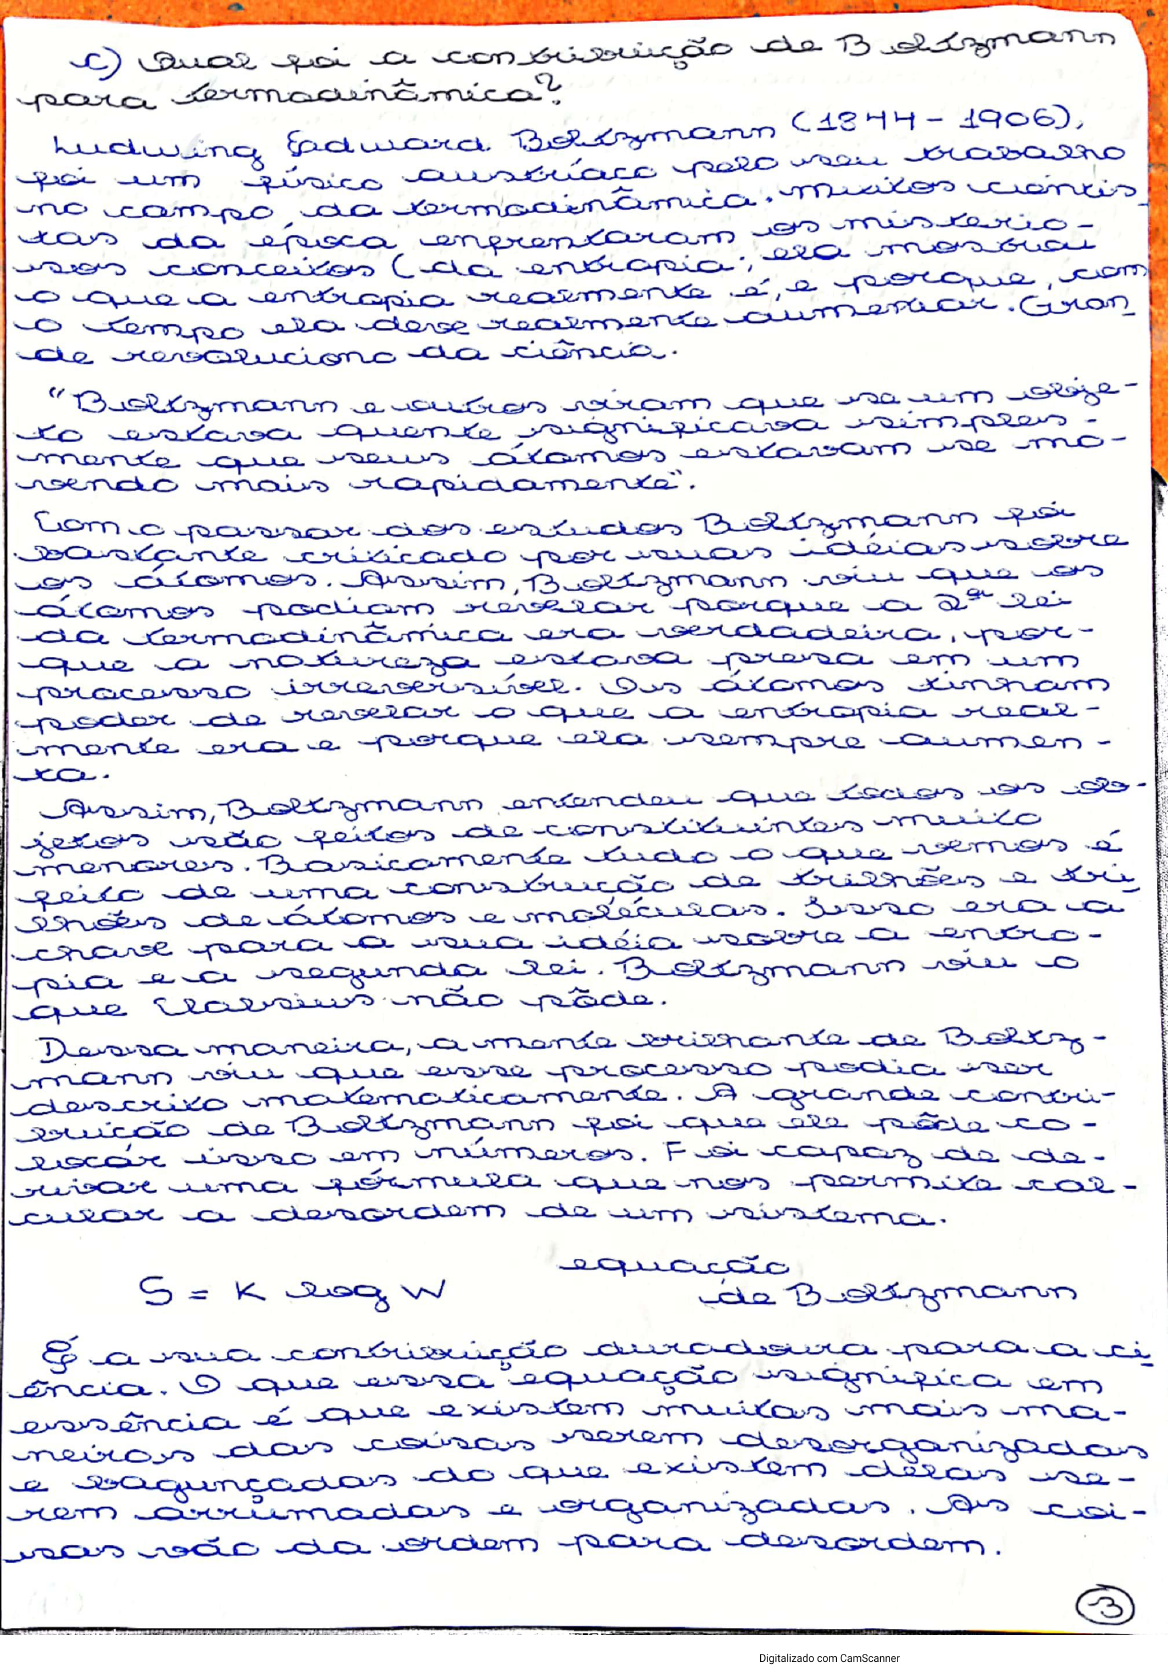 c) Qual foi a contribuição de Boltzmann
para termodinâmica?
Ludwing Eadward Boltzmann (1844 - 1906),
foi um físico austríaco pelo seu trabalho
no campo da termodinâmica. Muitos ciêntis_
tas da época enfrentaram os misterio-
sos conceitos (da entropia; ela mostrou
o que a entropia realmente é, e porque, com
o tempo ela deve realmente aumentar. Gran_
de revoluciono da ciência.
"Boltzmann e outros viram que se um obje-
to estava quente, significava simples-
mente que seus átomos estavam se mo-
vendo mais rapidamente".
Com o passar dos estudos Boltzmann foi
bastante criticado por suas idéias sobre
os átomos. Assim, Boltzmann viu que os
átomos podiam revelar porque a 2ª lei
da termodinâmica era verdadeira, por-
que a natureza estava presa em um
processo irreversível. Os átomos tinham
poder de revelar o que a entropia real-
mente era e porque ela sempre aumen-
ta.
Assim, Boltzmann entendeu que todos os ob-
jetos são feitos de constituintes muito
menores. Basicamente tudo o que vemos é
feito de uma construção de trilhões e tri_
lhões de átomos e moléculas. Isso era a
chave para a sua idéia sobre a entro-
pia e a segunda lei. Boltzmann viu o
que Clausius não pôde.
Dessa maneira, a mente brilhante de Boltz-
mann viu que esse processo podia ser
descrito matematicamente. A grande contri-
buição de Boltzmann foi que ele pôde co-
locar isso em números. Foi capaz de de-
rivar uma fórmula que nos permite cal-
cular a desordem de um sistema.
S = K log W
equação
de Boltzmann
É a sua contribuição duradoura para a ci_
ência. O que essa equação significa em
essência é que existem muitas mais ma-
neiras das coisas serem desorganizadas
e bagunçadas do que existem delas se-
rem arrumadas e organizadas. As coi-
sas vão da ordem para desordem.
3
Digitalizado com CamScanner